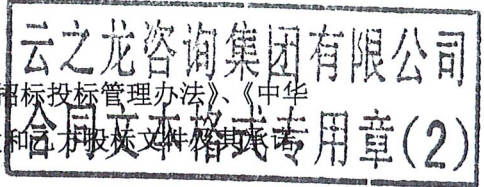 云之龙咨询集团有限公司
招标投标管理办法》、《中华
合同文本格式专用章(2)
和乙方投标文件及其承诺,